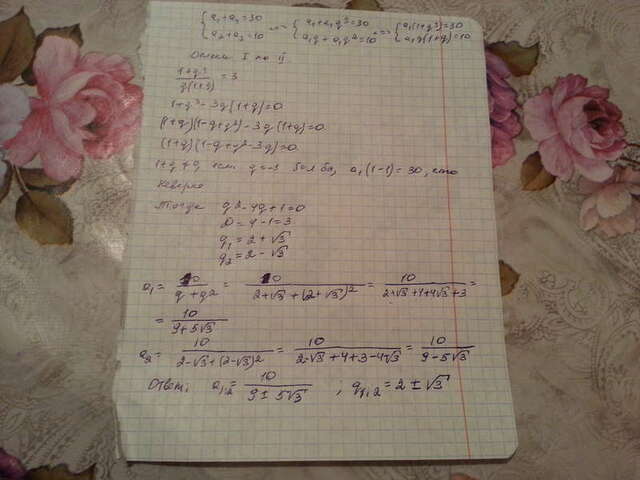 {a₁+a₄=30 a₂+a₃=10 <=> {a₁+a₁q³=30 a₁q+a₁q²=10 <=> {a₁(1+q³)=30 a₁q(1+q)=10
I на II
(1+q³)/(q(1+q)) = 3
1+q³-3q(1+q)=0
(1+q)(1-q+q²)-3q(1+q)=0
(1+q)(1-q+q²-3q)=0
1+q≠0, если q=-1 было бы, a₁(1-1)=30, что
неверно
Тогда q²-4q+1=0
D=4-1=3
q₁=2+√3
q₂=2-√3
a₁ = 10/(q+q²) = 10/(2+√3+(2+√3)²) = 10/(2+√3+4+4√3+3) =
= 10/(9+5√3)
a₂ = 10/(2-√3+(2-√3)²) = 10/(2-√3+4+3-4√3) = 10/(9-5√3)
Ответ: a₁,₂ = 10/(9±5√3) ; q₁,₂=2±√3